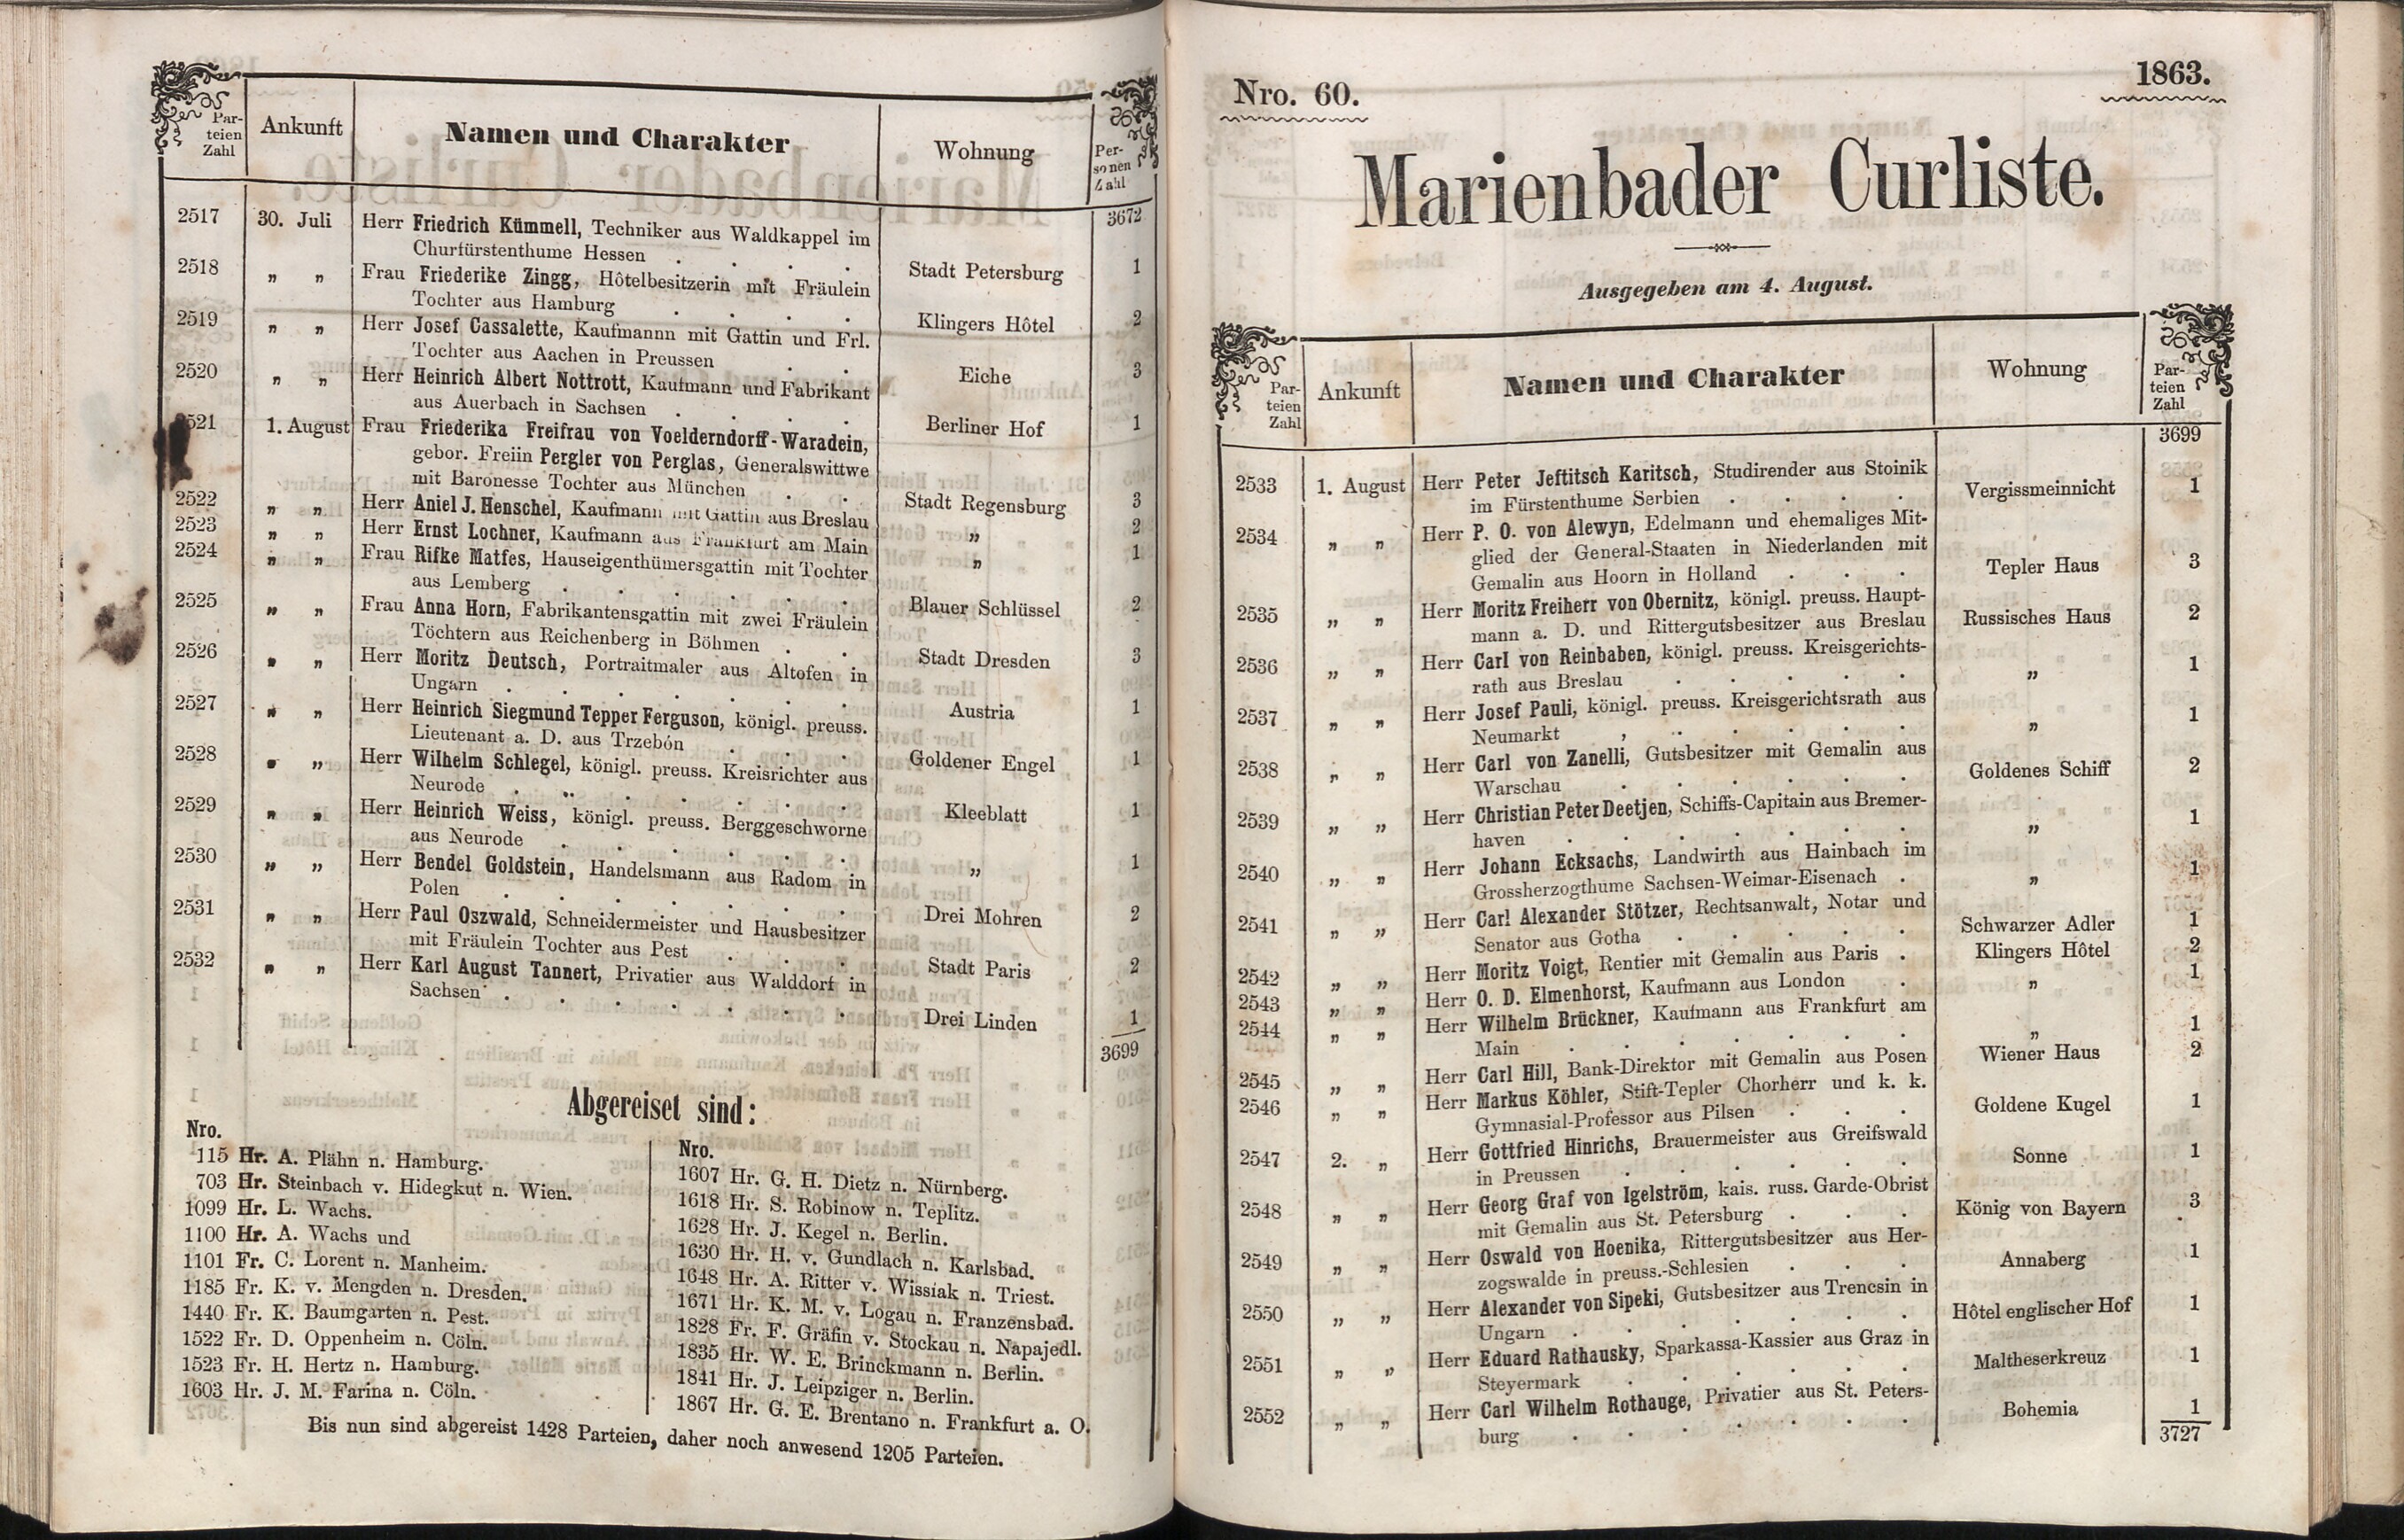 Par-
teien
Zahl
Ankunft
Namen und Charakter
Wohnung
Per-
sonen
Zahl
3672
2517 30. Juli Herr Friedrich Kümmell, Techniker aus Waldkappel im
Churfürstenthume Hessen . . . . Stadt Petersburg 1
2518 „ „ Frau Friederike Zingg, Hôtelbesitzerin mit Fräulein
Tochter aus Hamburg . . . . Klingers Hôtel 2
2519 „ „ Herr Josef Cassalette, Kaufmannn mit Gattin und Frl.
Tochter aus Aachen in Preussen . . Eiche 3
2520 „ „ Herr Heinrich Albert Nottrott, Kaufmann und Fabrikant
aus Auerbach in Sachsen . . . . Berliner Hof 1
2521 1. August Frau Friederika Freifrau von Voelderndorff-Waradein,
gebor. Freiin Pergler von Perglas, Generalswittwe
mit Baronesse Tochter aus München . . Stadt Regensburg 3
2522 „ „ Herr Aniel J. Henschel, Kaufmann mit Gattin aus Breslau „ 2
2523 „ „ Herr Ernst Lochner, Kaufmann aus Frankfurt am Main „ 1
2524 „ „ Frau Rifke Matfes, Hauseigenthümersgattin mit Tochter
aus Lemberg . . . . . . Blauer Schlüssel 2
2525 „ „ Frau Anna Horn, Fabrikantensgattin mit zwei Fräulein
Töchtern aus Reichenberg in Böhmen . . Stadt Dresden 3
2526 „ „ Herr Moritz Deutsch, Portraitmaler aus Altofen in
Ungarn . . . . . . . Austria 1
2527 „ „ Herr Heinrich Siegmund Tepper Ferguson, königl. preuss.
Lieutenant a. D. aus Trzebón . . . Goldener Engel 1
2528 „ „ Herr Wilhelm Schlegel, königl. preuss. Kreisrichter aus
Neurode . . . . . . . Kleeblatt 1
2529 „ „ Herr Heinrich Weiss, königl. preuss. Berggeschworne
aus Neurode . . . . . . „ 1
2530 „ „ Herr Bendel Goldstein, Handelsmann aus Radom in
Polen . . . . . . . Drei Mohren 2
2531 „ „ Herr Paul Oszwald, Schneidermeister und Hausbesitzer
mit Fräulein Tochter aus Pest . . . Stadt Paris 2
2532 „ „ Herr Karl August Tannert, Privatier aus Walddorf in
Sachsen . . . . . . . Drei Linden 1
3699
Abgereiset sind:
Nro.
115 Hr. A. Plähn n. Hamburg.
703 Hr. Steinbach v. Hidegkut n. Wien.
1099 Hr. L. Wachs.
1100 Hr. A. Wachs und
1101 Fr. C. Lorent n. Manheim.
1185 Fr. K. v. Mengden n. Dresden.
1440 Fr. K. Baumgarten n. Pest.
1522 Fr. D. Oppenheim n. Cöln.
1523 Fr. H. Hertz n. Hamburg.
1603 Hr. J. M. Farina n. Cöln.
Nro.
1607 Hr. G. H. Dietz n. Nürnberg.
1618 Hr. S. Robinow n. Teplitz.
1628 Hr. J. Kegel n. Berlin.
1630 Hr. H. v. Gundlach n. Karlsbad.
1648 Hr. A. Ritter v. Wissiak n. Triest.
1671 Hr. K. M. v. Logau n. Franzensbad.
1828 Fr. F. Gräfin v. Stockau n. Napajedl.
1835 Hr. W. E. Brinckmann n. Berlin.
1841 Hr. J. Leipziger n. Berlin.
1867 Hr. G. E. Brentano n. Frankfurt a. O.
Bis nun sind abgereist 1428 Parteien, daher noch anwesend 1205 Parteien.
Nro. 60.
1863.
Marienbader Curliste.
Ausgegeben am 4. August.
Par-
teien
Zahl
Ankunft
Namen und Charakter
Wohnung
Par-
teien
Zahl
3699
2533 1. August Herr Peter Jeftitsch Karitsch, Studirender aus Stoinik
im Fürstenthume Serbien . . . . Vergissmeinnicht 1
2534 „ „ Herr P. O. von Alewyn, Edelmann und ehemaliges Mit-
glied der General-Staaten in Niederlanden mit
Gemalin aus Hoorn in Holland . . . Tepler Haus 3
2535 „ „ Herr Moritz Freiherr von Obernitz, königl. preuss. Haupt-
mann a. D. und Rittergutsbesitzer aus Breslau Russisches Haus 2
2536 „ „ Herr Carl von Reinbaben, königl. preuss. Kreisgerichts-
rath aus Breslau . . . . . „ 1
2537 „ „ Herr Josef Pauli, königl. preuss. Kreisgerichtsrath aus
Neumarkt , . . . . . „ 1
2538 „ „ Herr Carl von Zanelli, Gutsbesitzer mit Gemalin aus
Warschau . . . . . . Goldenes Schiff 2
2539 „ „ Herr Christian Peter Deetjen, Schiffs-Capitain aus Bremer-
haven . . . . . . . „ 1
2540 „ „ Herr Johann Ecksachs, Landwirth aus Hainbach im
Grossherzogthume Sachsen-Weimar-Eisenach . „ 1
2541 „ „ Herr Carl Alexander Stötzer, Rechtsanwalt, Notar und
Senator aus Gotha . . . . . Schwarzer Adler 1
2542 „ „ Herr Moritz Voigt, Rentier mit Gemalin aus Paris . Klingers Hôtel 2
2543 „ „ Herr O. D. Elmenhorst, Kaufmann aus London . „ 1
2544 „ „ Herr Wilhelm Brückner, Kaufmann aus Frankfurt am
Main . . . . . . . „ 1
2545 „ „ Herr Carl Hill, Bank-Direktor mit Gemalin aus Posen Wiener Haus 2
2546 „ „ Herr Markus Köhler, Stift-Tepler Chorherr und k. k.
Gymnasial-Professor aus Pilsen . . . Goldene Kugel 1
2547 2. „ Herr Gottfried Hinrichs, Brauermeister aus Greifswald
in Preussen . . . . . . Sonne 1
2548 „ „ Herr Georg Graf von Igelström, kais. russ. Garde-Obrist
mit Gemalin aus St. Petersburg . . . König von Bayern 3
2549 „ „ Herr Oswald von Hoenika, Rittergutsbesitzer aus Her-
zogswalde in preuss.-Schlesien . . . Annaberg 1
2550 „ „ Herr Alexander von Sipeki, Gutsbesitzer aus Trencsin in
Ungarn . . . . . . . Hôtel englischer Hof 1
2551 „ „ Herr Eduard Rathausky, Sparkassa-Kassier aus Graz in
Steyermark . . . . . . Maltheserkreuz 1
2552 „ „ Herr Carl Wilhelm Rothauge, Privatier aus St. Peters-
burg . . . . . . . Bohemia 1
3727